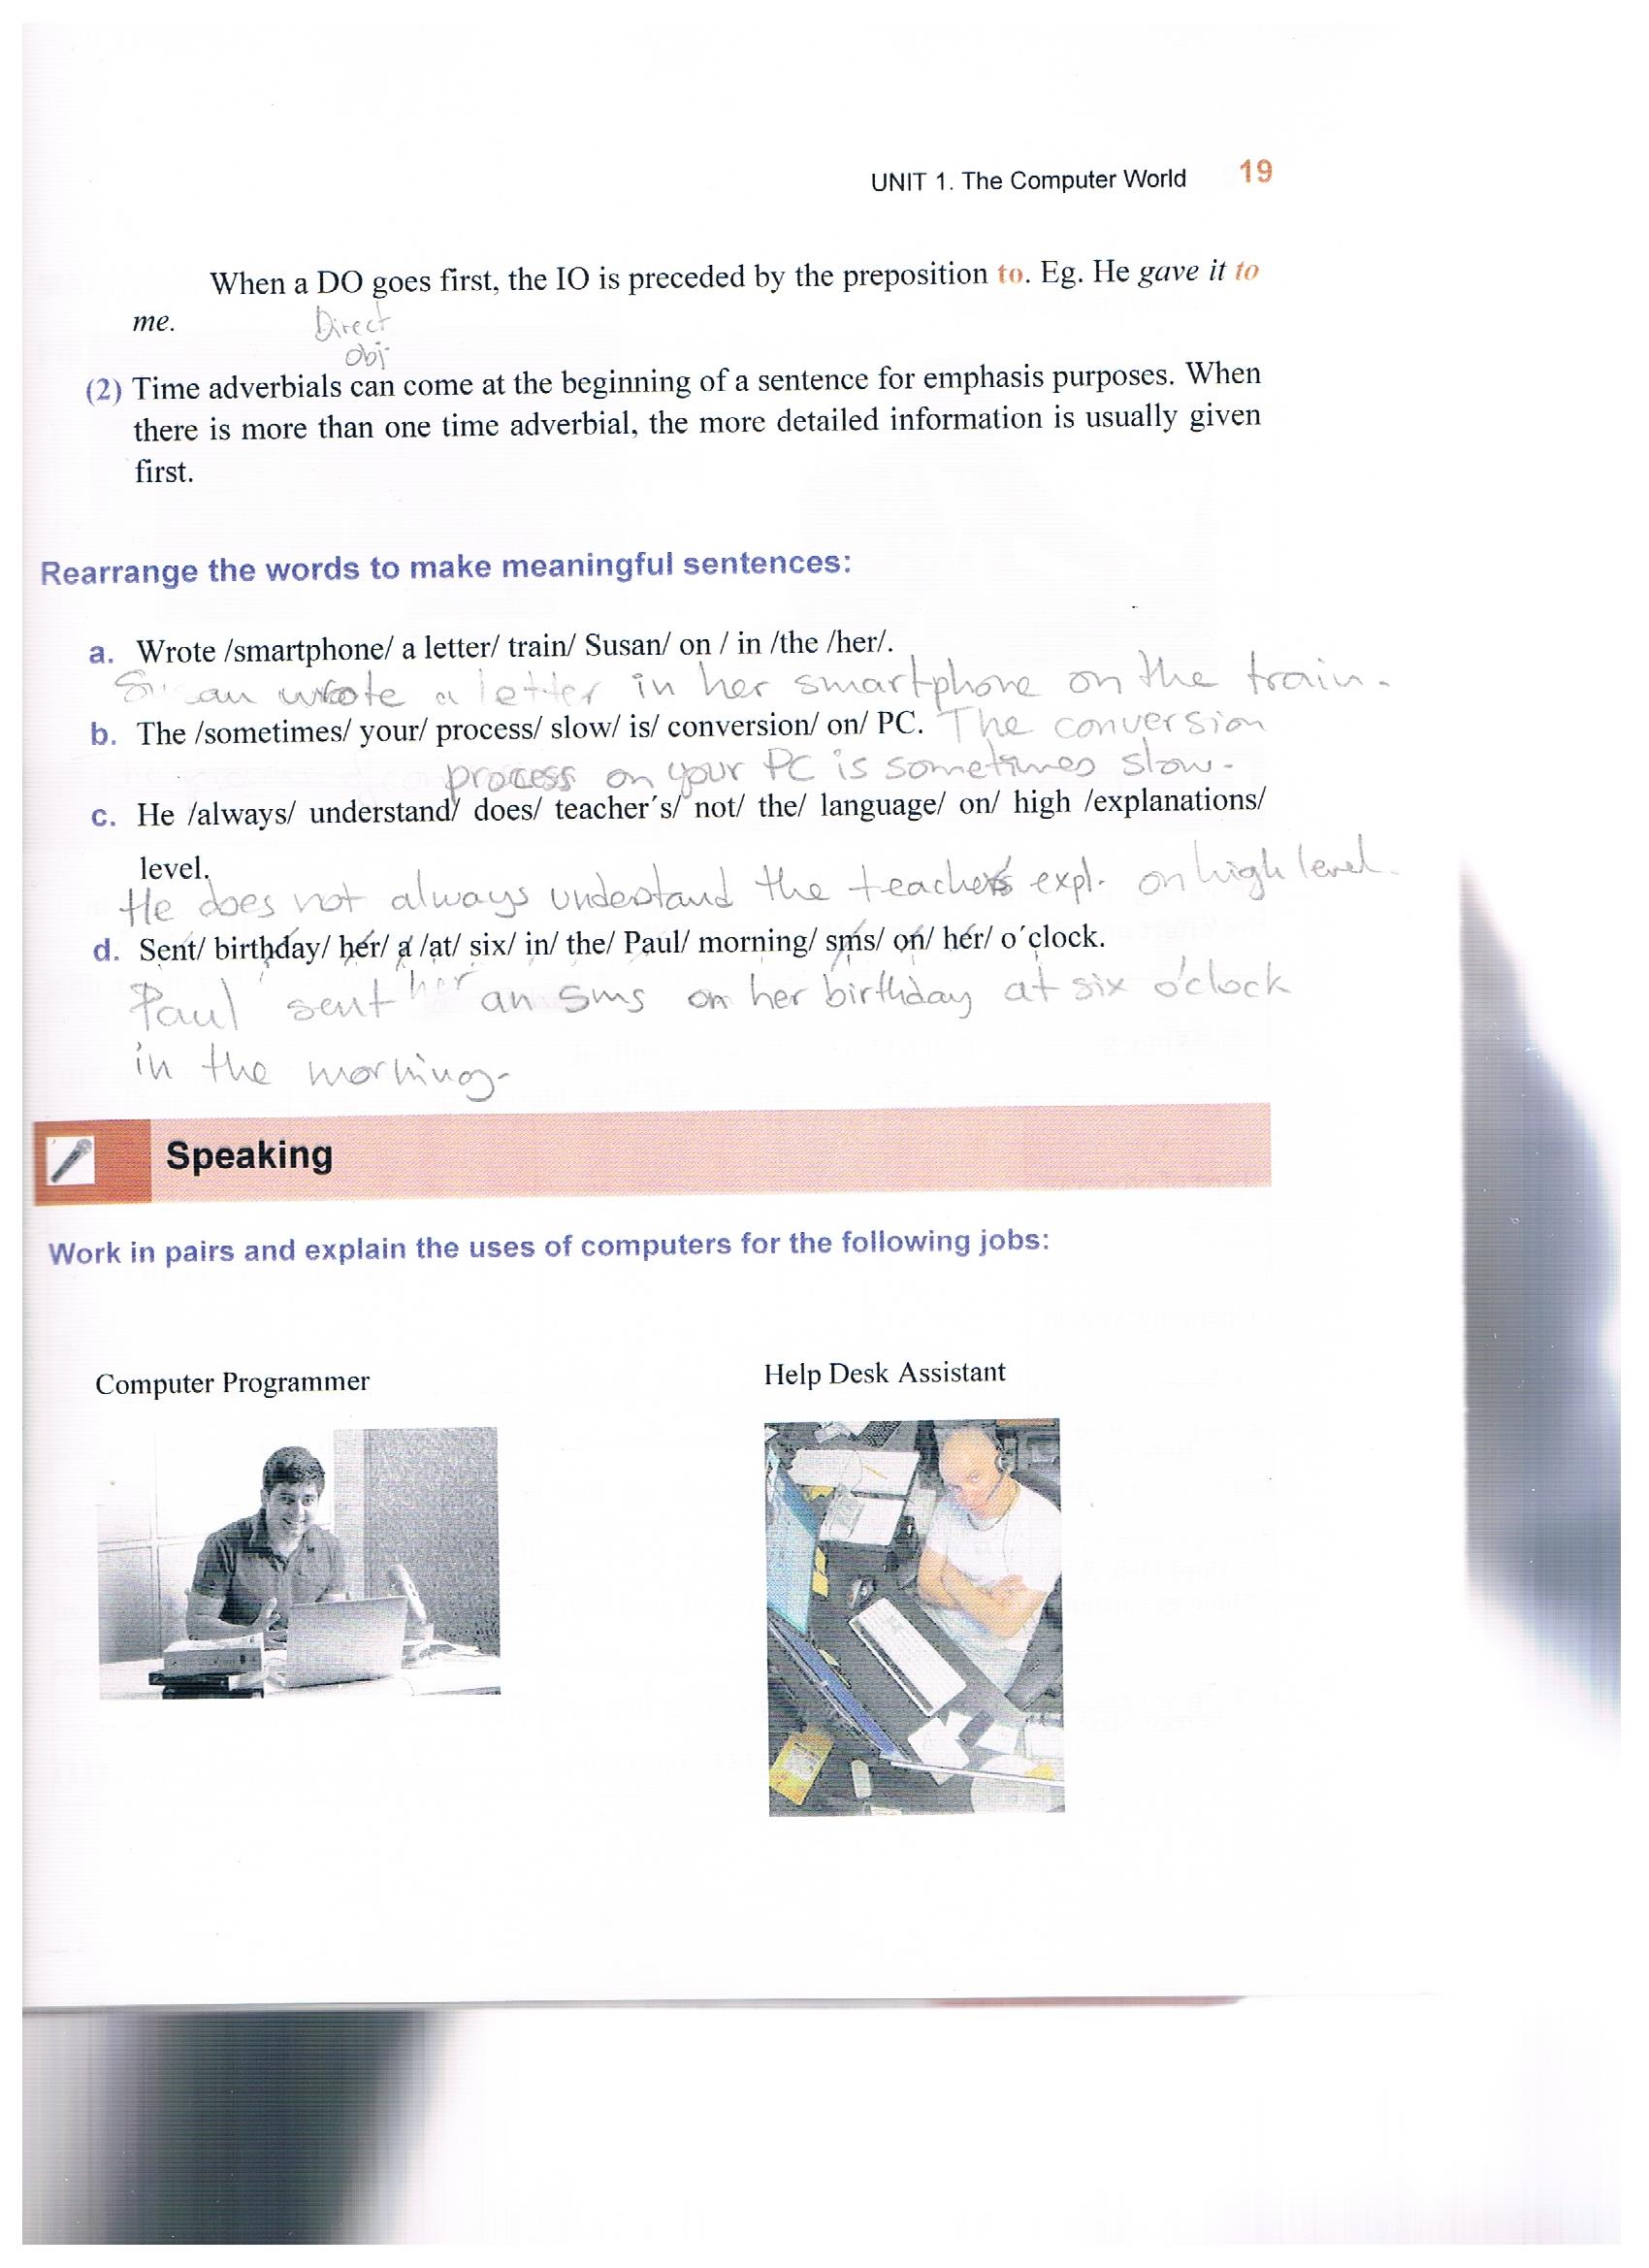 UNIT 1. The Computer World 19
When a DO goes first, the IO is preceded by the preposition to. Eg. He gave it to
me.
Direct
Obj
(2) Time adverbials can come at the beginning of a sentence for emphasis purposes. When
there is more than one time adverbial, the more detailed information is usually given
first.
Rearrange the words to make meaningful sentences:
a. Wrote /smartphone/ a letter/ train/ Susan/ on / in /the /her/.
Susan wrote a letter in her smartphone on the train.
b. The /sometimes/ your/ process/ slow/ is/ conversion/ on/ PC. The conversion
process on your PC is sometimes slow.
c. He /always/ understand/ does/ teacher´s/ not/ the/ language/ on/ high /explanations/
level.
He does not always understand the teacher's expl. on high level.
d. Sent/ birthday/ her/ a /at/ six/ in/ the/ Paul/ morning/ sms/ on/ her/ o´clock.
Paul sent her an sms on her birthday at six o'clock
in the morning.
Speaking
Work in pairs and explain the uses of computers for the following jobs:
Computer Programmer
Help Desk Assistant